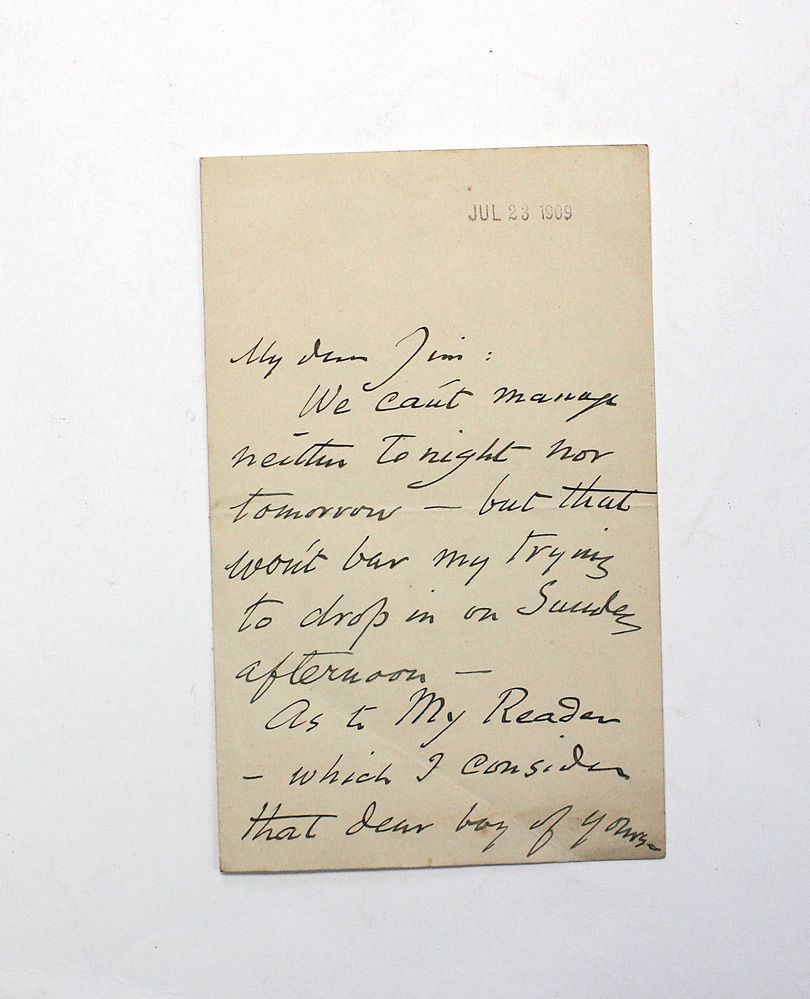 JUL 23 1909
My dear Jim:
We can't manage
neither to night nor
tomorrow – but that
won't bar my trying
to drop in on Sunday
afternoon –
As to My Reader
– which I consider
that dear boy of yours –